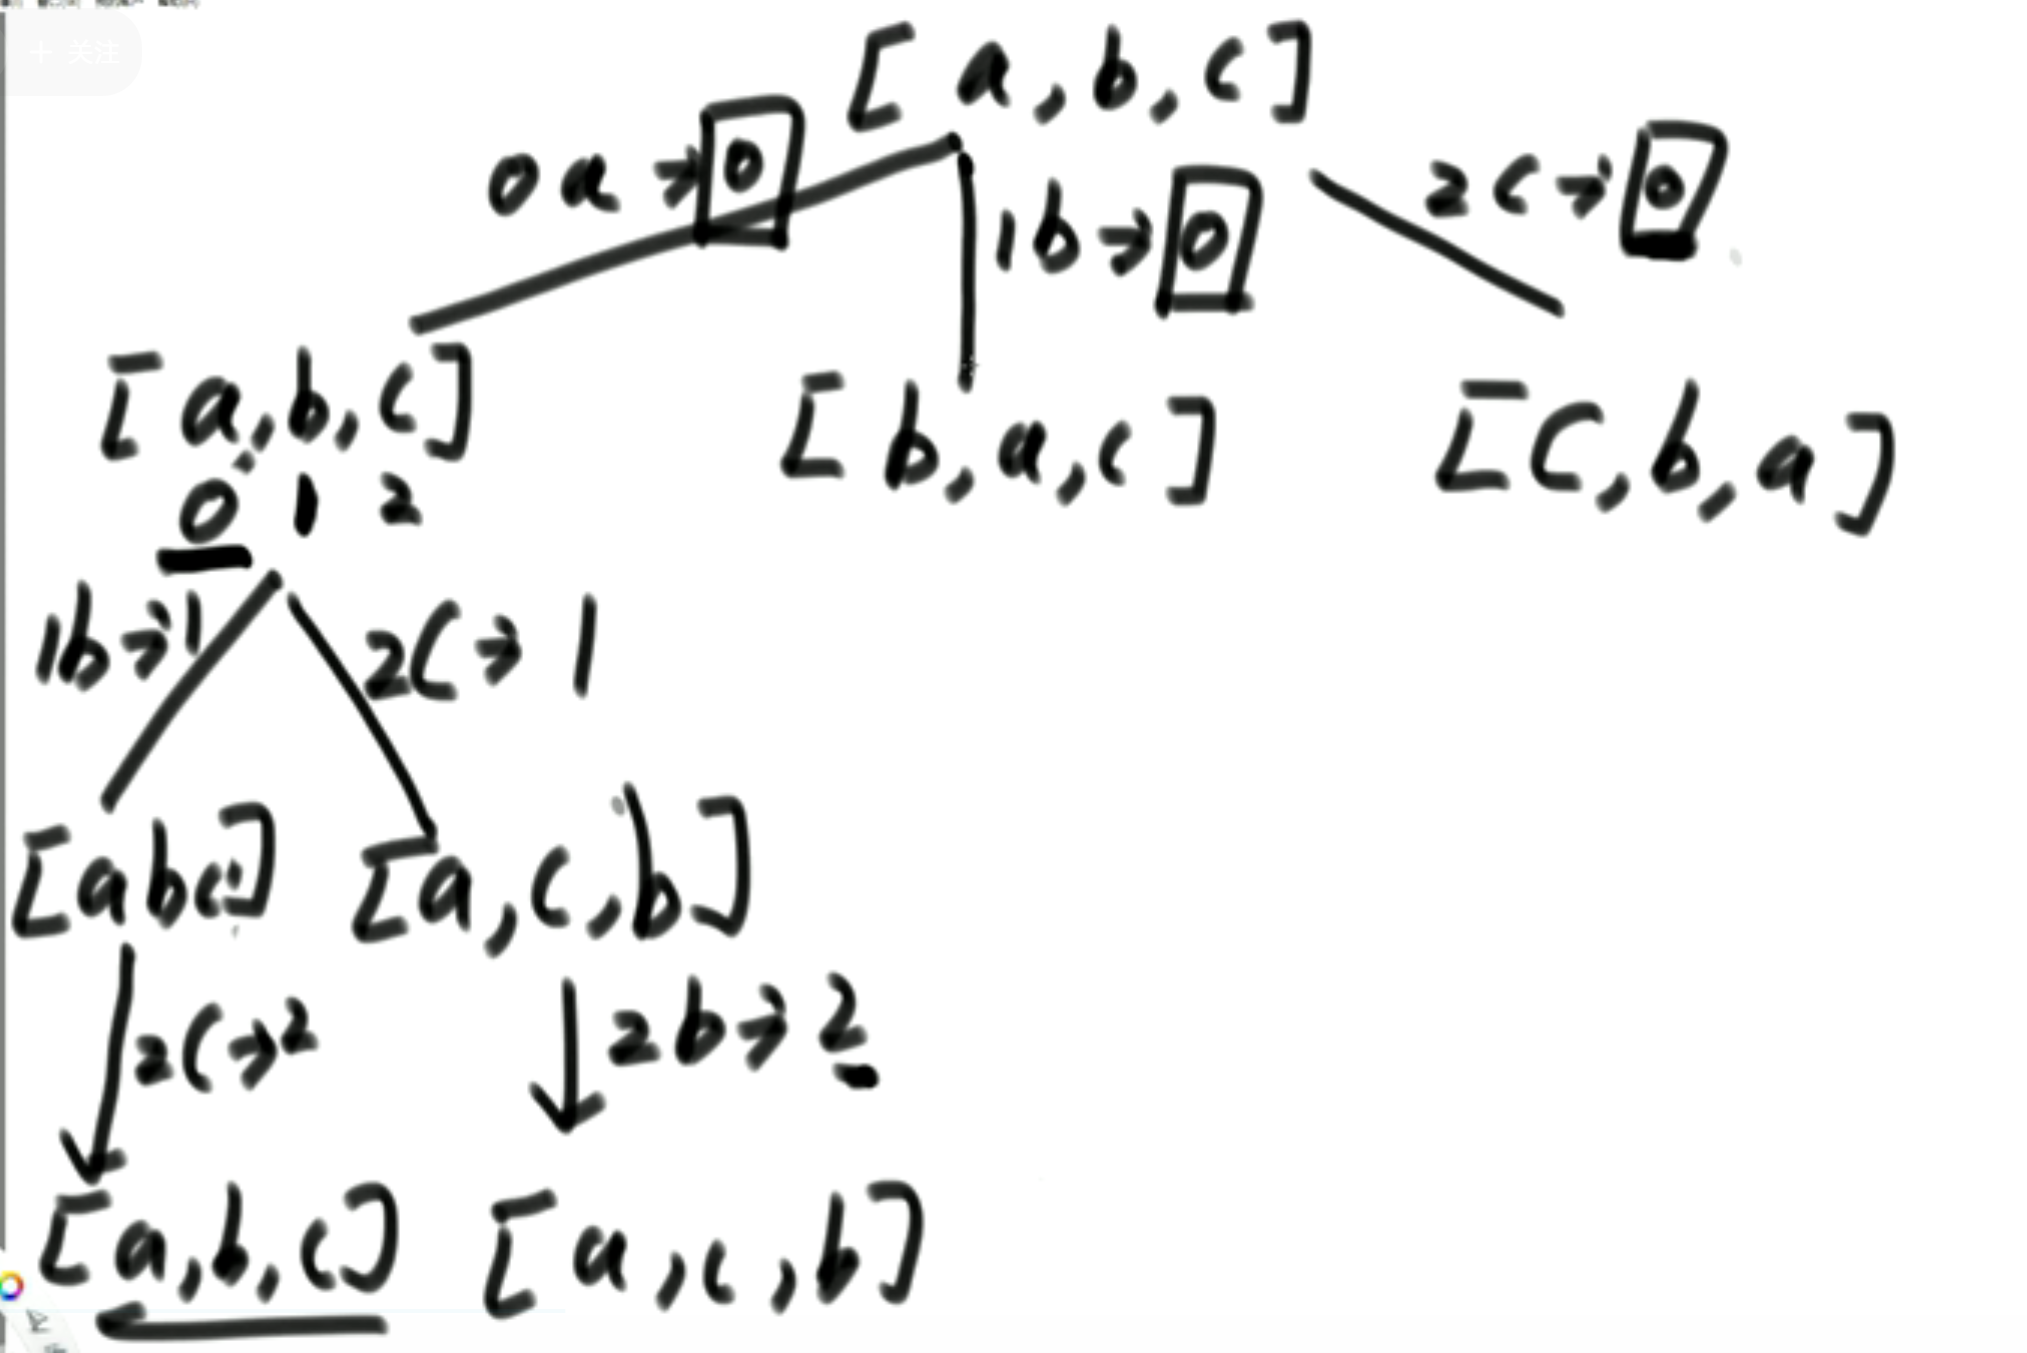 + 关注
[a,b,c]
0a→0
1b→0
2c→0
[a,b,c]
[b,a,c]
[c,b,a]
0 1 2
1b→1
2c→1
[abc]
[a,c,b]
2c→2
2b→2
[a,b,c]
[a,c,b]